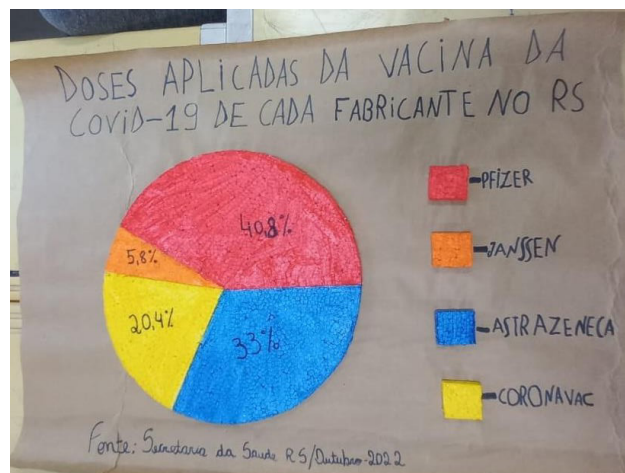 DOSES APLICADAS DA VACINA DA
COVID-19 DE CADA FABRICANTE NO RS
40,8%
5,8%
20,4%
33%
PFIZER
JANSSEN
ASTRAZENECA
CORONAVAC
Fonte: Secretaria da Saude RS/Outubro-2022